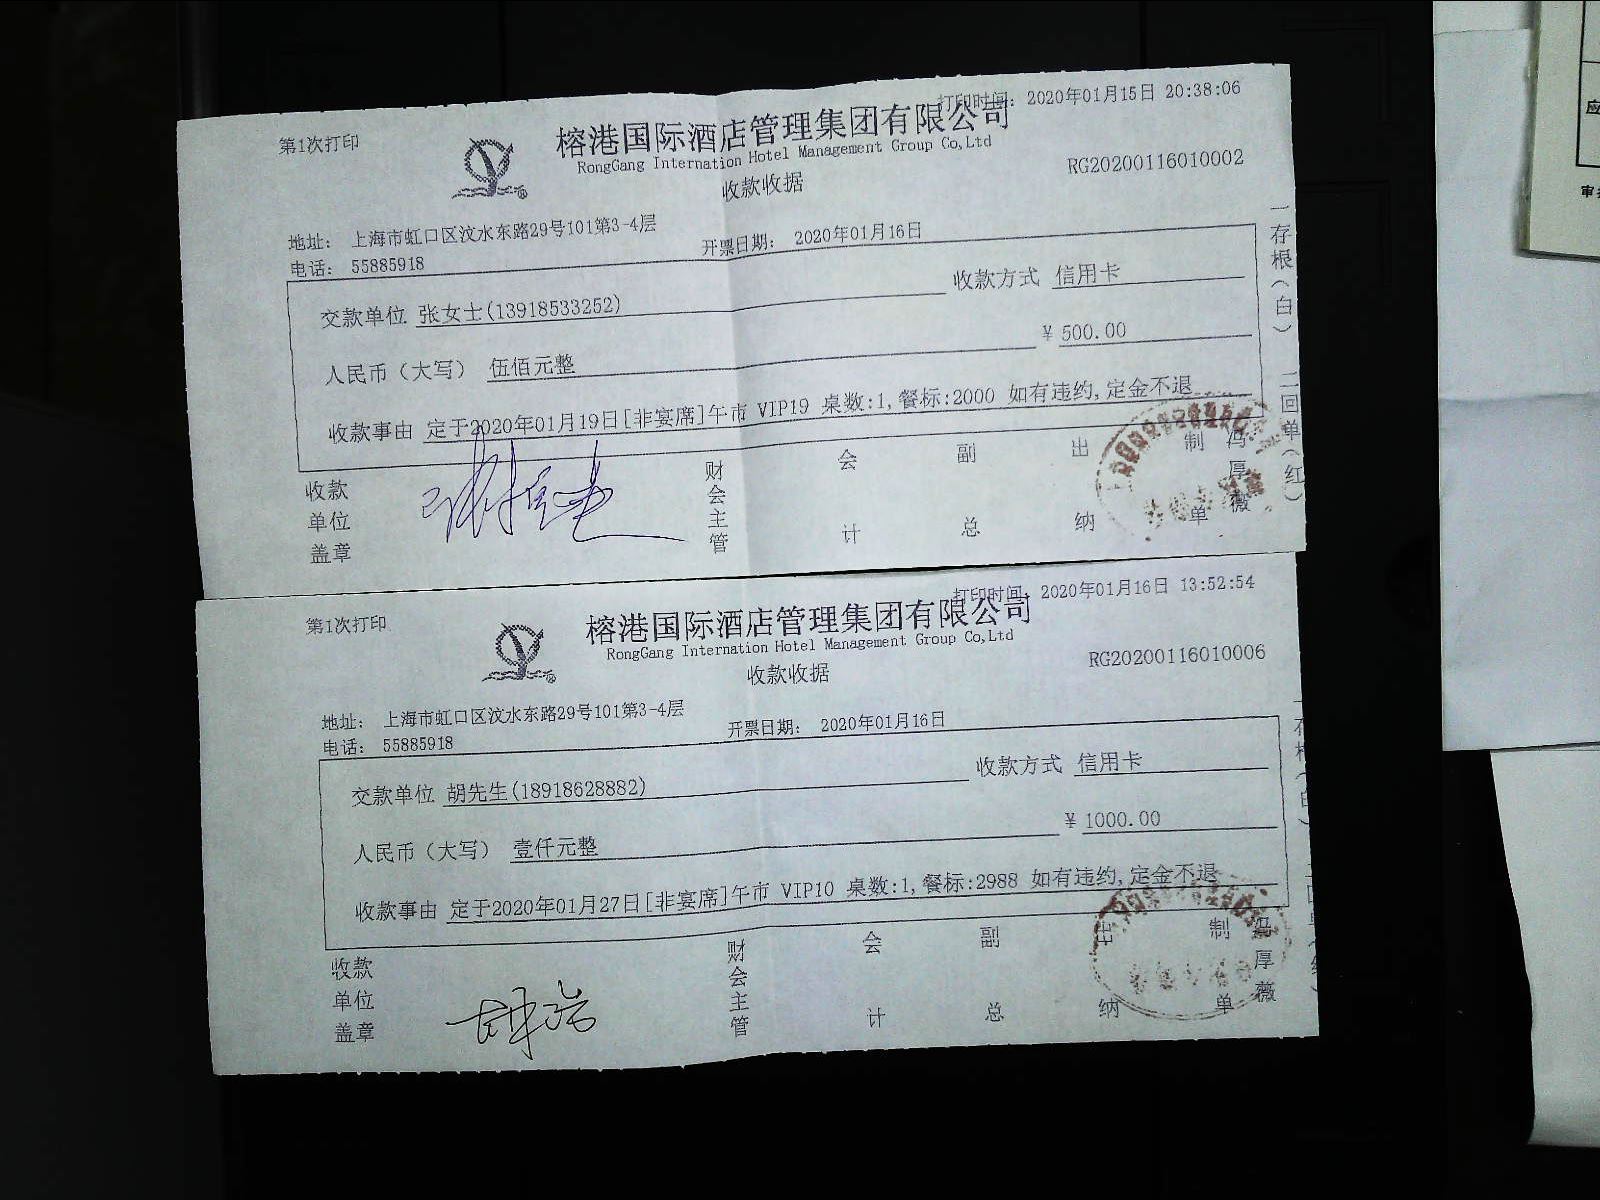 打印时间: 2020年01月15日 20:38:06
第1次打印
榕港国际酒店管理集团有限公司
RongGang Internation Hotel Management Group Co,Ltd
RG20200116010002
收款收据
地址: 上海市虹口区汶水东路29号101第3-4层
开票日期: 2020年01月16日
电话: 55885918
收款方式 信用卡
交款单位 张女士(13918533252)
¥ 500.00
人民币(大写) 伍佰元整
收款事由 定于2020年01月19日[非宴席]午市 VIP19 桌数:1,餐标:2000 如有违约,定金不退
一存根(白) 二回单(红)
收款单位盖章
财会主管
会计
副总
出纳
制单
冯厚薇
打印时间: 2020年01月16日 13:52:54
第1次打印
榕港国际酒店管理集团有限公司
RongGang Internation Hotel Management Group Co,Ltd
RG20200116010006
收款收据
地址: 上海市虹口区汶水东路29号101第3-4层
开票日期: 2020年01月16日
电话: 55885918
收款方式 信用卡
交款单位 胡先生(18918628882)
¥ 1000.00
人民币(大写) 壹仟元整
收款事由 定于2020年01月27日[非宴席]午市 VIP10 桌数:1,餐标:2988 如有违约,定金不退
收款单位盖章
财会主管
会计
副总
出纳
制单
冯厚薇
应
审